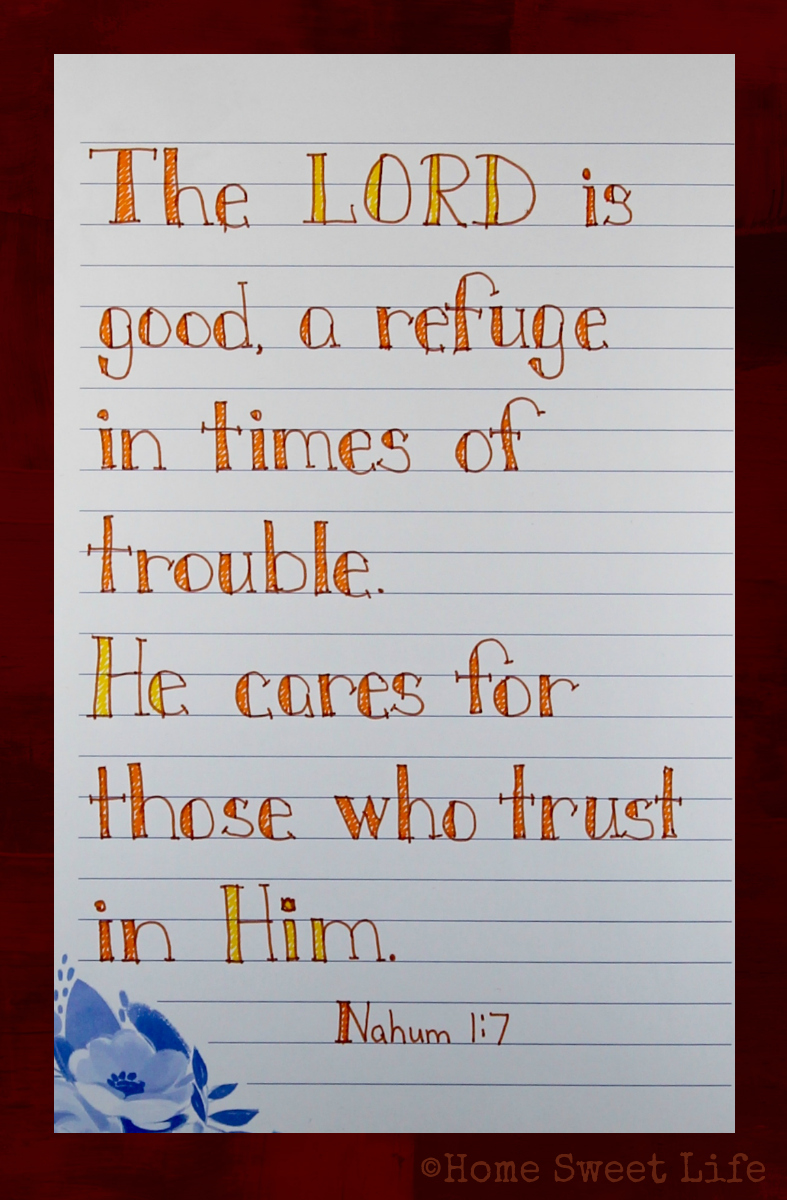 The LORD is
good, a refuge
in times of
trouble.
He cares for
those who trust
in Him.
Nahum 1:7
©Home Sweet Life